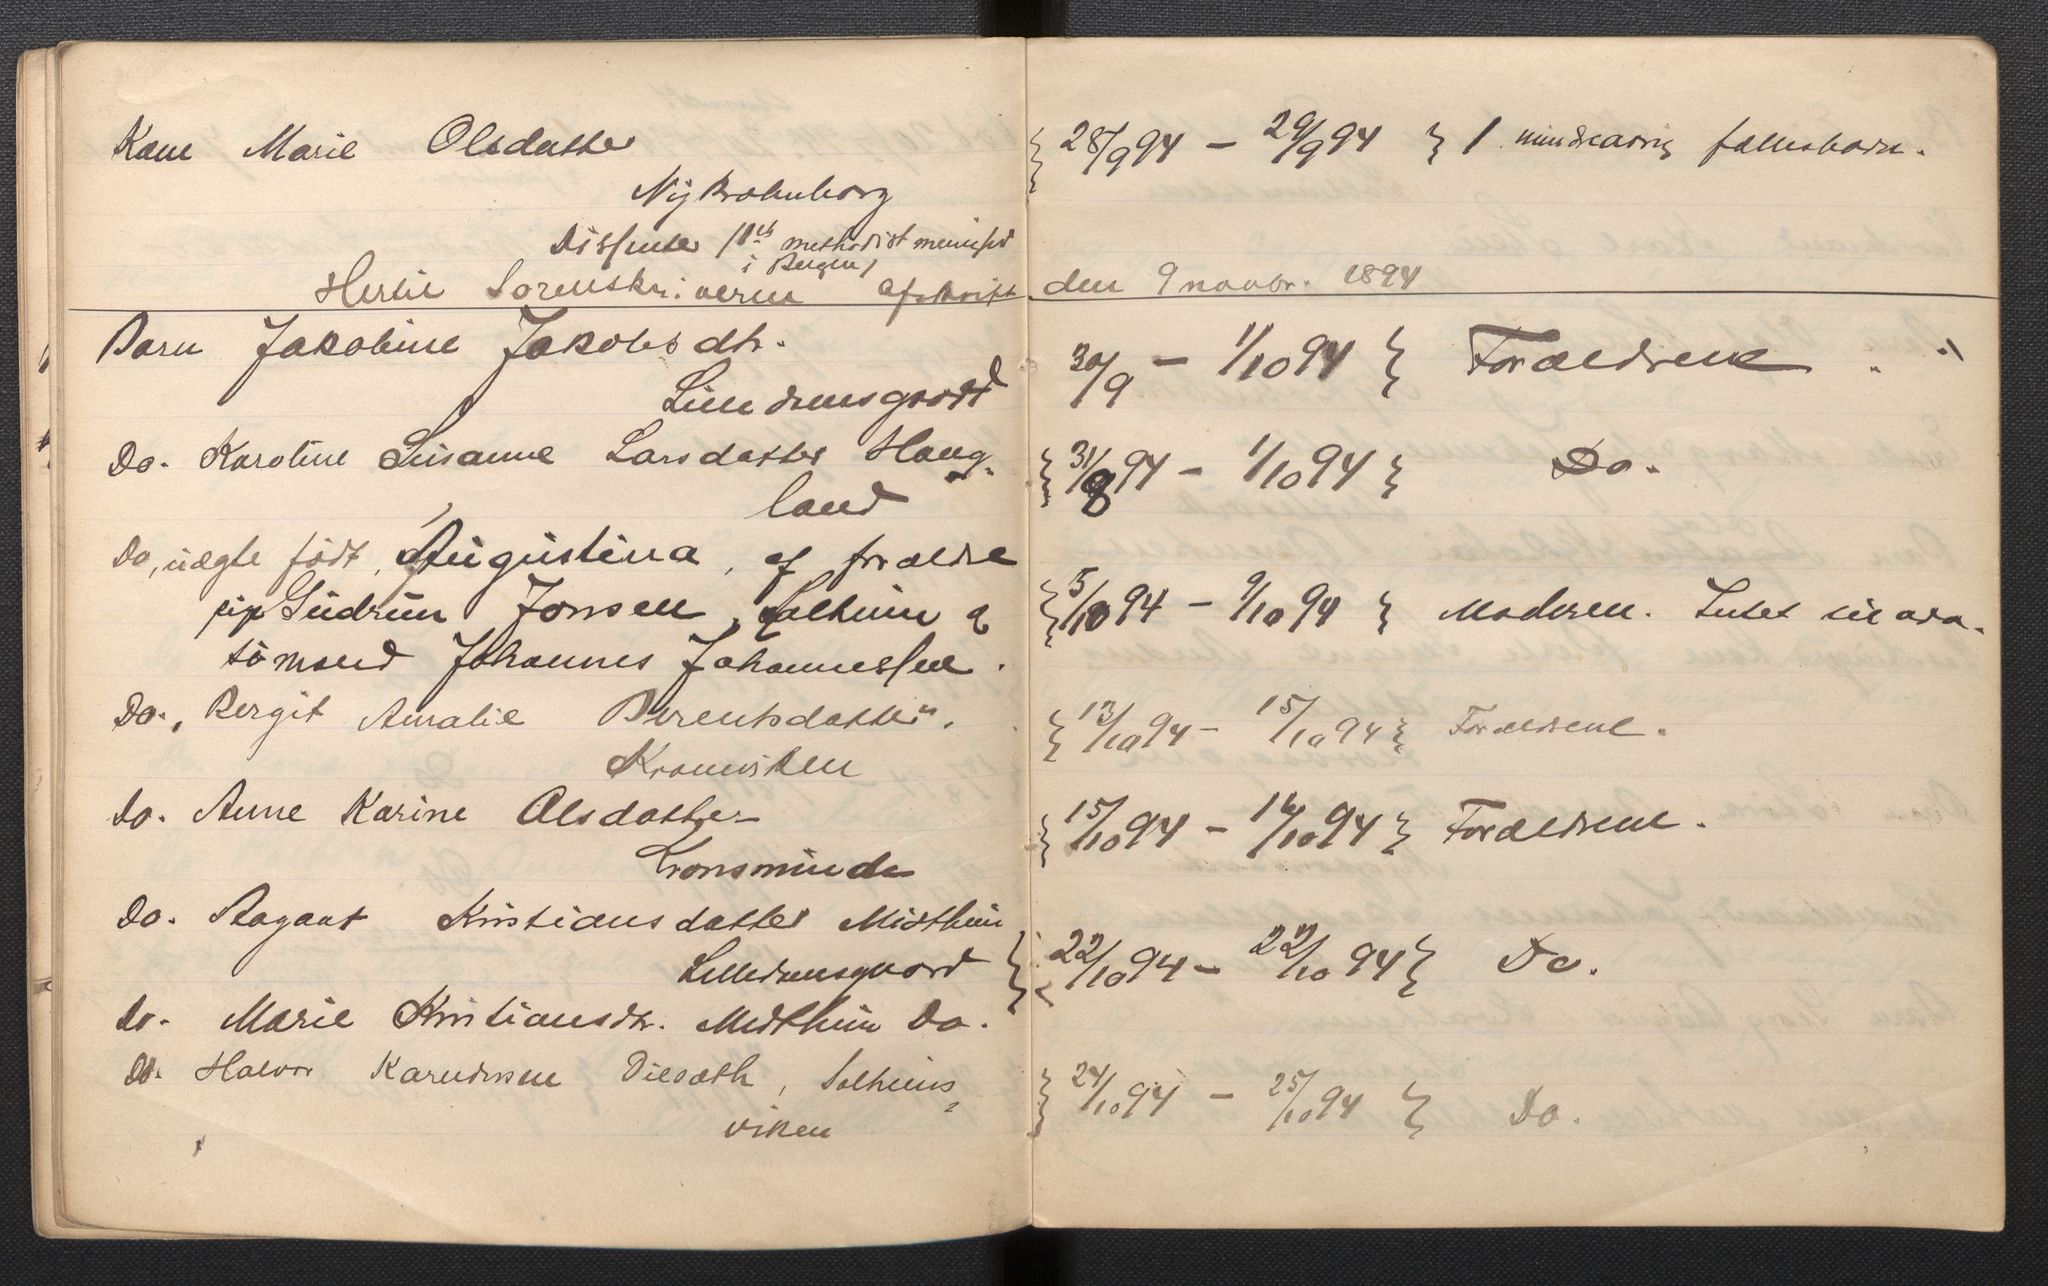 Kone Marie Olsdatter
28/9 94 - 29/9 94 1 mindreaarig fællesbarn.
Nykrohnborg
Dissenter / methodist menighed
i Bergen/
Hertil Sorenskriveren afskrift den 9 novbr. 1894
Barn Jakobine Jakobsdtr.
30/9 - 1/10 94 Forældrene.
Do. Karoline Susanne Larsdatter Haug-
land
31/8 94 - 1/10 94 Do.
Do, uægte født, Augustina, af forældre
pige Gudrun Jonsen, Solheim &
sömand Johannes Johannessen.
5/10 94 - 9/10 94 Moderen. Intet
Do., Bergit Amalie Berentsdatter.
Kroneviken
13/10 94 - 15/10 94 Forældrene.
Do. Anne Karine Olsdatter
Kronsminde
15/10 94 - 16/10 94 Forældrene.
Do. Kristiansdatter Midthun
22/10 94 - 22/10 94 Do.
Do. Marie Kristiansdtr. Midthun Do.
Do. Halvor Solheims-
viken
24/10 94 - 25/10 94 Do.